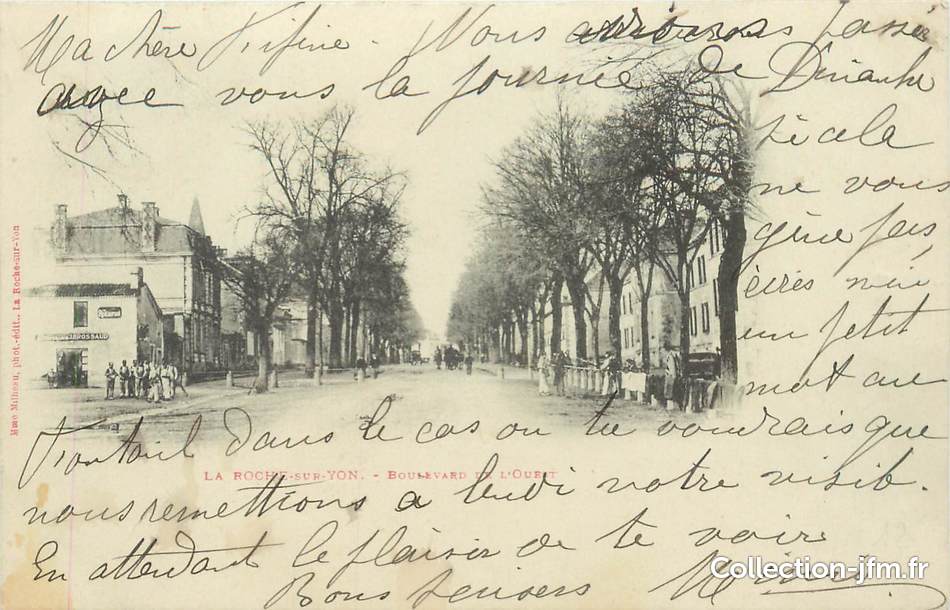 Ma chère Fifine. Nous irons passer
avec vous la journée de Dimanche
si cela
ne vous
gène pas
écris moi
un petit
mot au
dans le cas ou tu voudrais que
nous remettions a lundi notre visite.
En attendant le plaisir de te voir
Bons baisers M
LA ROCHE-SUR-YON. - BOULEVARD DE L'OUEST
Mme Milheau, phot.-édit., La Roche-sur-Yon
Collection-jfm.fr